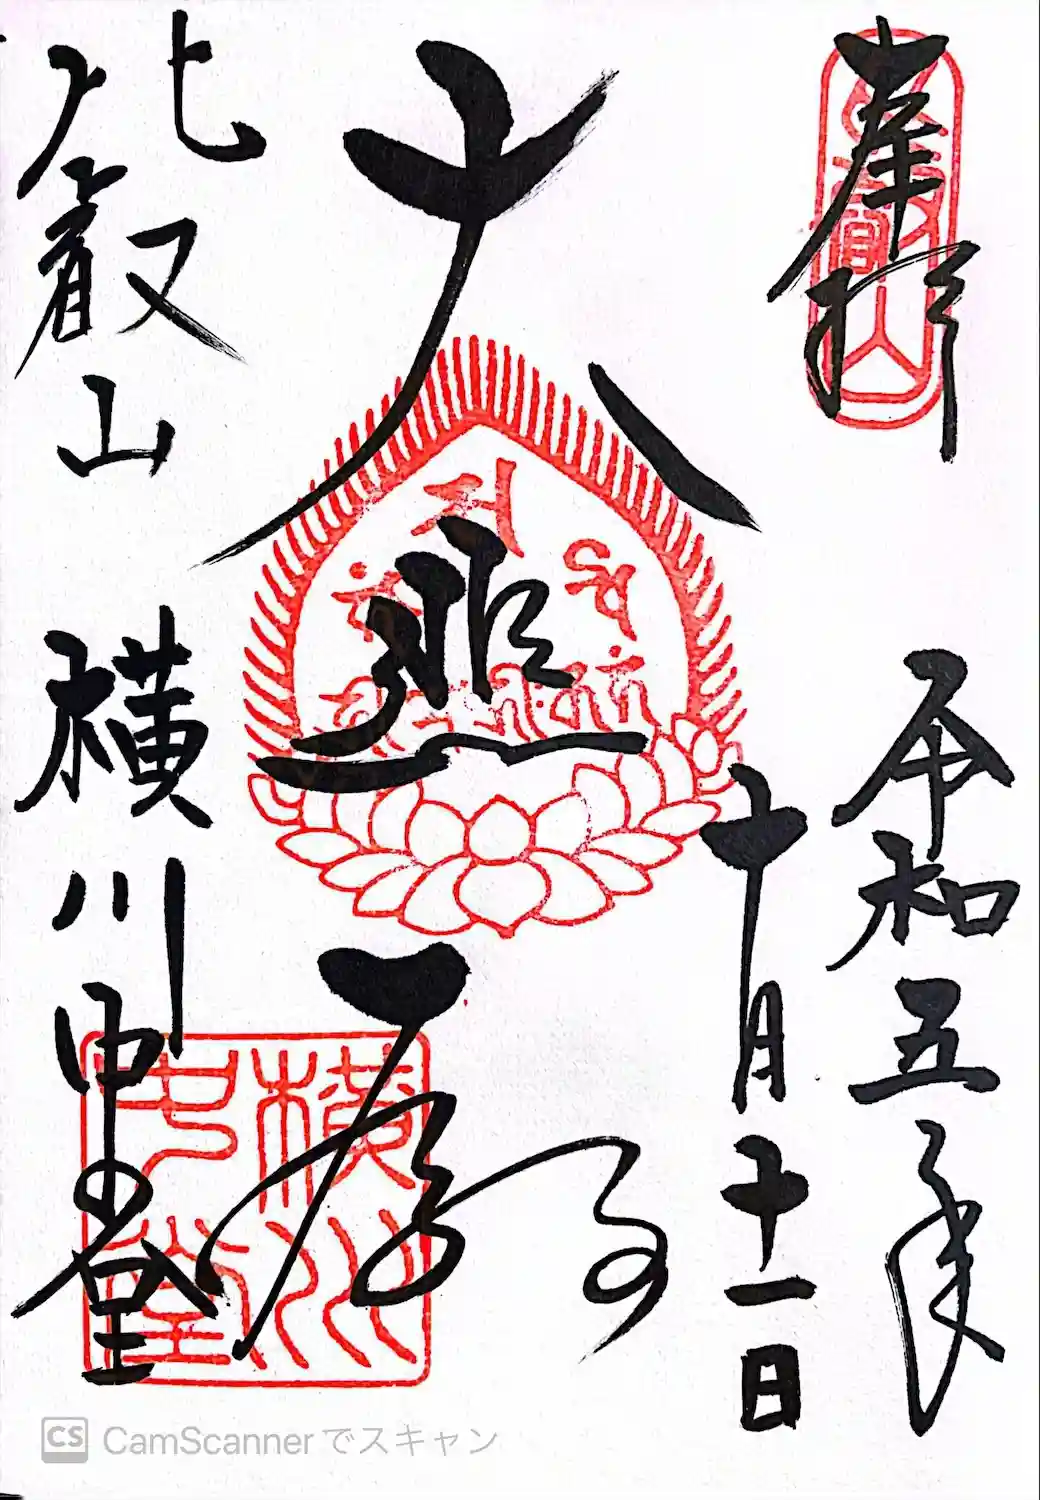 奉拝
比叡山
令和五年
十月十一日
大悲殿
比叡山 横川中堂
横川
中堂
CS CamScannerでスキャン